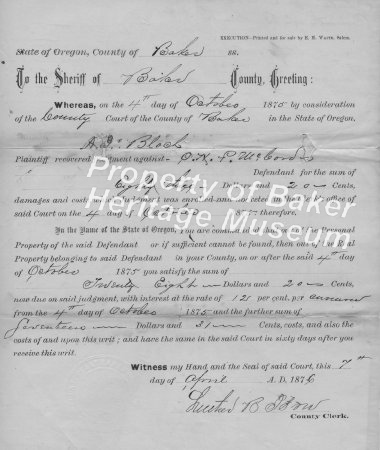 EXECUTION—Printed and for sale by E. M. Waite, Salem.
State of Oregon, County of Baker ss.
To the Sheriff of Baker County, Greeting:
Whereas, on the 4th day of October 1875 by consideration
of the County Court of the County of Baker in the State of Oregon.
Block
Plaintiff recovered judgment against
Defendant for the sum
of Dollars and 20 Cents,
damages and costs, which judgment was enrolled and docketed in the Clerk's office of
said Court on the 4 day of October therefore,
In the Name of the State of Oregon, You are commanded, that out of the Personal
Property of the said Defendant or if sufficient cannot be found, then out of the Real
Property belonging to said Defendant in your County, on or after the said 4th day
of October 1875 you satisfy the sum of
Twenty Eight Dollars and 20 Cents,
now due on said judgment, with interest at the rate of per cent. per annum
from the 4th day of October 1875 and the further sum of
Seventeen Dollars and 31 Cents, costs, and also the
costs of and upon this writ; and have the same in the said Court in sixty days after you
receive this writ.
Witness my Hand and the Seal of said Court, this 7th
day of April A.D. 1876
County Clerk.
Property of Baker
Heritage Museum